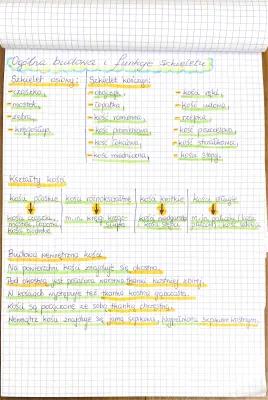 Ogólna budowa i funkcje szkieletu
Szkielet osiowy: Szkielet kończyn:
- czaszka, - obojczyk, - kości ręki,
- mostek, - łopatka, - kość udowa,
- żebra, - kość ramienna, - rzepka,
- kręgosłup. - kość promieniowa, - kość piszczelowa,
- kość łokciowa, - kość strzałkowa,
- kość miedniczna, - kości stopy.
Kształty kości
kości płaskie kości różnokształtne kości krótkie kości długie
kości czaszki, m.in. kręgi kręgo- kości nadgarstka m.in. paliczki / kości
mostek, łopatki, słupa kości stępu
kości biodrowe
Budowa wewnętrzna kości
Na powierzchni kości znajduje się okostna.
Pod okostną jest położona warstwa tkanki kostnej zbitej.
W kościach występuje też tkanka kostna gąbczasta.
Kości są połączone ze sobą tkanką chrzęstną.
Wewnątrz kości znajduje się jama szpikowa, wypełniona szpikiem kostnym.